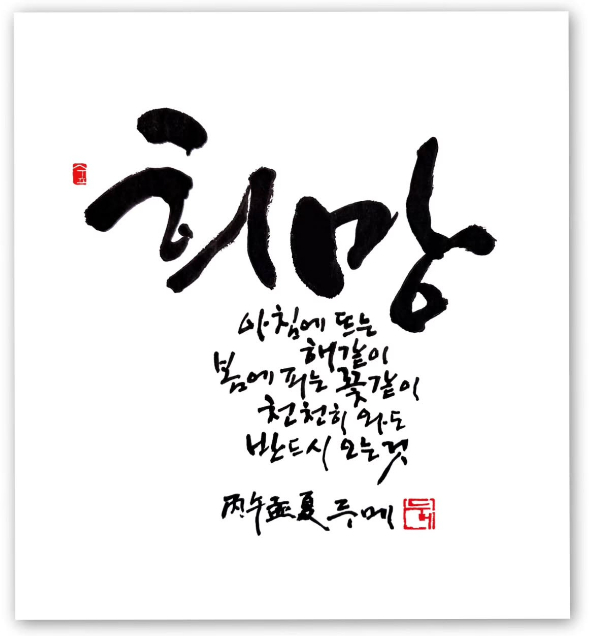 희망
아침에 뜨는
해같이
봄에 피는 꽃같이
천천히 와도
반드시 오는것
丙午孟夏 두메
두메